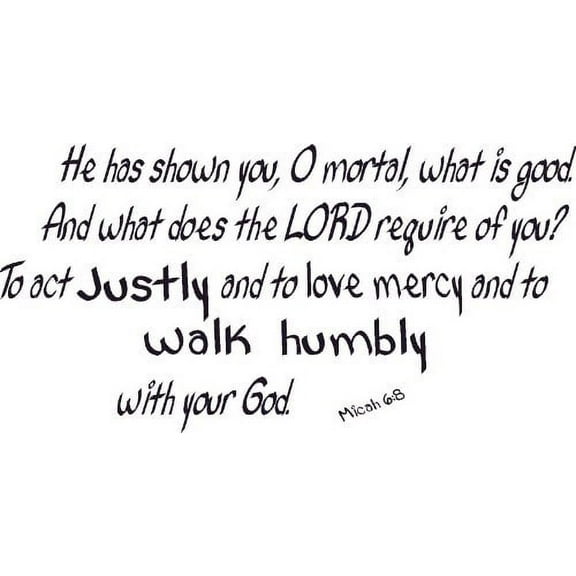 He has shown you, O mortal, what is good.
And what does the LORD require of you?
To act Justly and to love mercy and to
walk humbly
with your God.
Micah 6:8